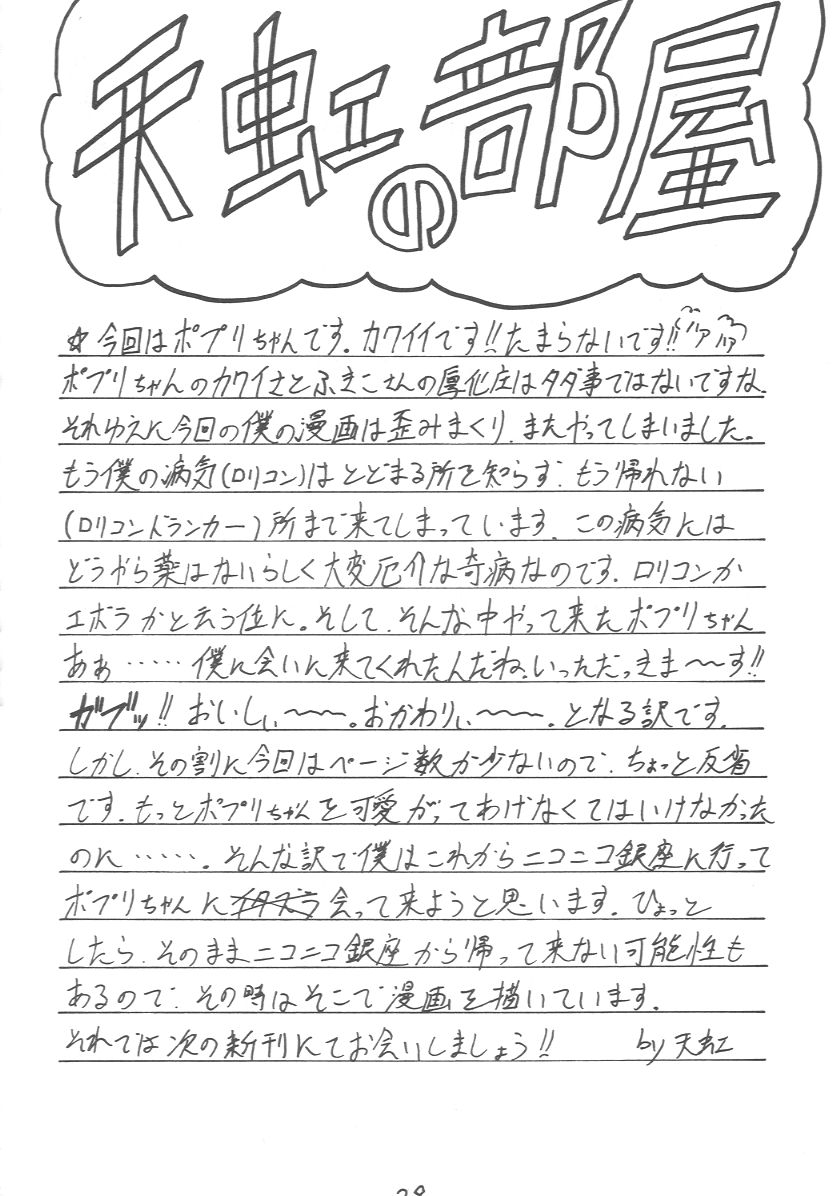 天虹の部屋
☆今回はポプリちゃんです。カワイイです!!たまらないです!!ハァハァ
ポプリちゃんのカワイさとふきこさんの厚化粧はタダ事ではないですな。
それゆえに今回の僕の漫画は歪みまくり、またやってしまいました。
もう僕の病気(ロリコン)はとどまる所を知らず、もう帰れない
(ロリコンドランカー)所まで来てしまっています。この病気には
どうやら薬はないらしく大変厄介な奇病なのです。ロリコンか
エボラかと云う位に。そして、そんな中やって来たポプリちゃん
あぁ……僕に会いに来てくれたんだね、いっただっきま〜〜す!!
ガブッ!!おいしぃ〜〜。おかわりぃ〜〜。となる訳です。
しかし、その割に今回はページ数が少ないので、ちょっと反省
です。もっとポプリちゃんを可愛がってあげなくてはいけなかった
のに……。そんな訳で僕はこれからニコニコ銀座に行って
ポプリちゃんにイタズラ会って来ようと思います。ひょっと
したら、そのままニコニコ銀座から帰って来ない可能性も
あるので、その時はそこで漫画を描いています。
それでは次の新刊にてお会いしましょう!! by天虹